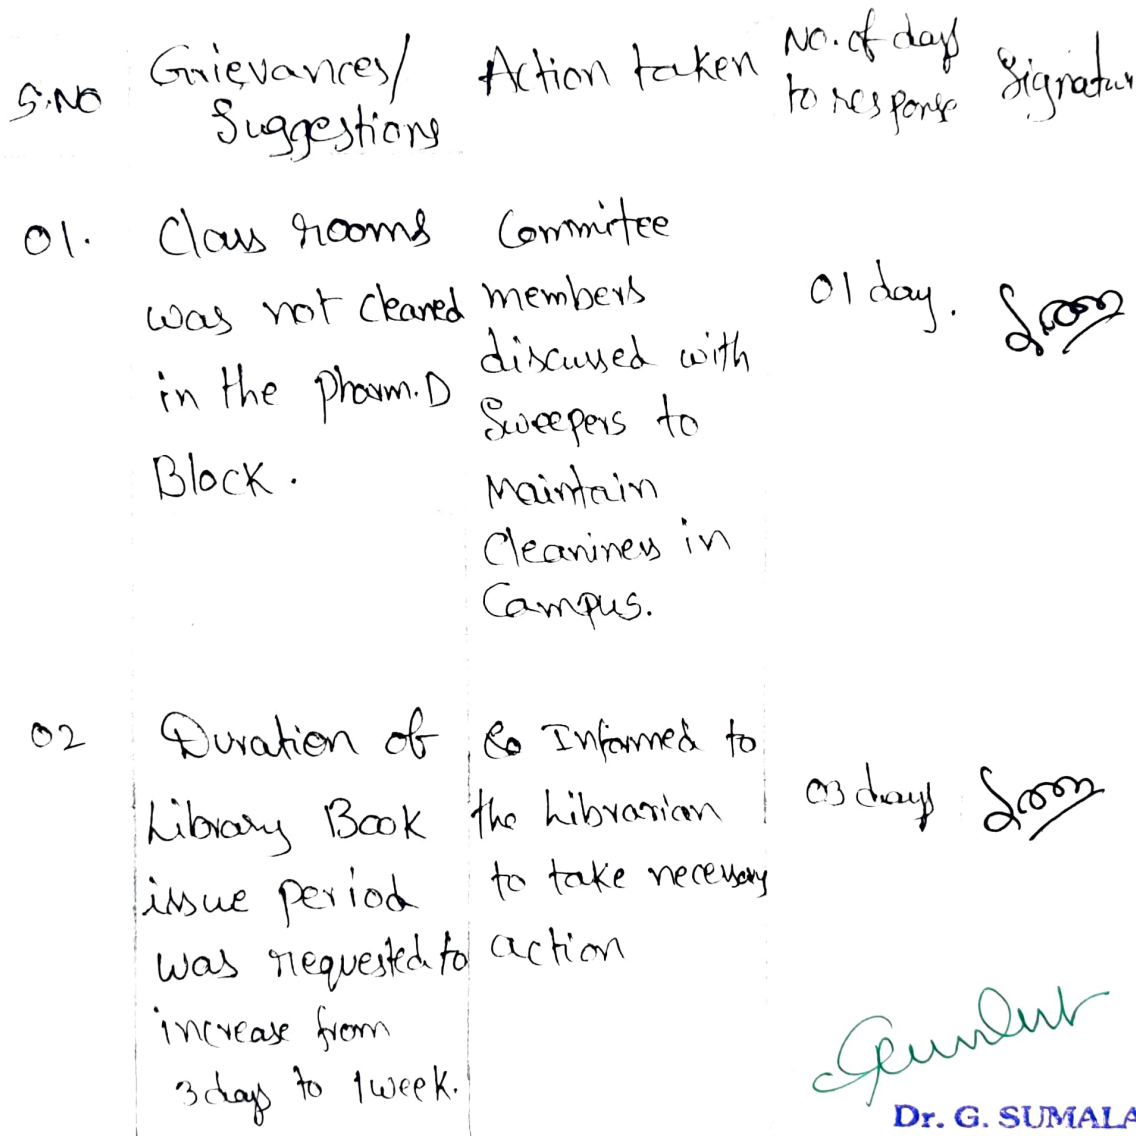 S.NO
Grievances/
Suggestions
Action taken
No. of days
to response
Signature
01.
Class rooms
was not cleaned
in the pharm.D
Block.
Commitee
members
discussed with
Sweepers to
Maintain
Cleaniness in
Campus.
01 day.
02
Duration of
Library Book
issue period
was requested to
increase from
3 days to 1 week.
Informed to
the Librarian
to take necessary
action
03 days
Dr. G. SUMALA